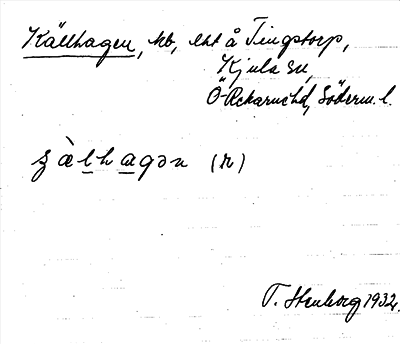 Källhagen, hb, lht å Tingstorp,
Kjula sn,
Ö-Rekarne hd, Söderm. l.
ʂàlhagən (n)
T. Stenborg 1932.